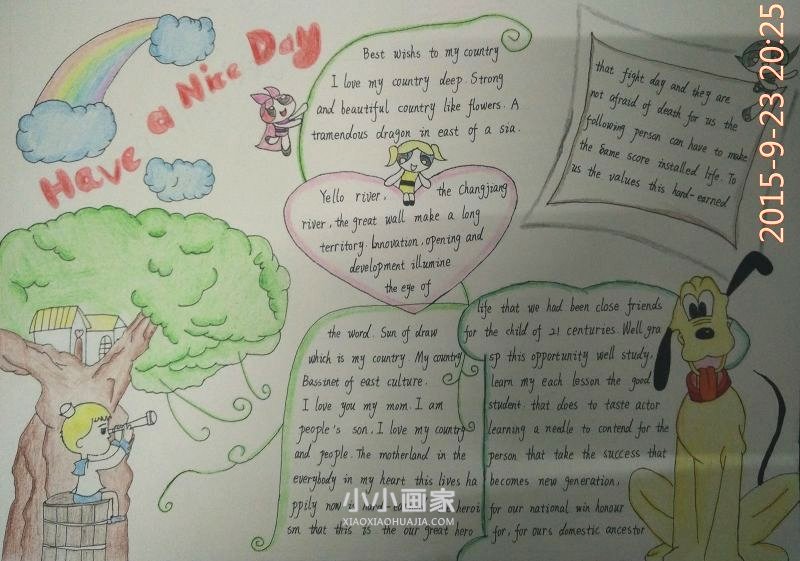 Have a Nice Day
Best wishes to my country
I love my country deep. Strong
and beautiful country like flowers. A
tramendous dragon in east of a sia.
Yello river, the Changjiang
river, the great wall make a long
territory. Innovation, opening and
development illumine
the eye of
the word. Sun of draw
which is my country. My country
Bassinet of east culture.
I love you my mom. I am
people's son. I love my country
and people. The motherland in the
everybody in my heart this lives ha
ppily now is hard-
heroi
sm that this is the our great hero
that fight day and they are
not afraid of death for us the
following person can have to make
the same score installed life. To
us the values this hard-earned
life that we had been close friends
for the child of 21 centuries. Well gra
sp this opportunity well study,
learn my each lesson the good
student. that does to taste actor
learning a needle to contend for the
person that take the success that
becomes new generation,
for our national win honour
for, for ours domestic ancestor
小小画家
XIAOXIAOHUAJIA.COM
2015-9-23 20:25